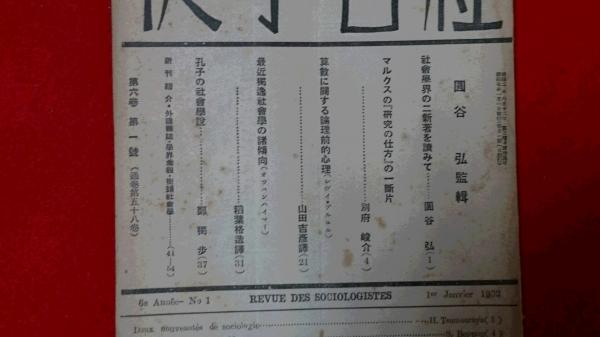 社會學徒
圓谷 弘監輯
社會學界の二新著を讀みて……圓谷 弘(1)
マルクスの『研究の仕方』の一斷片
別府 峻介(4)
算數に關する論理前的心理(レヴィ・ブリュル)
山田吉彥譯(21)
最近獨逸社會學の諸傾向(オッペンハイマー)
稻葉格造譯(31)
孔子の社會學說……鄭 獨步(37)
新刊紹介・外國雜誌・學界彙報・街頭社會學……(41—54)
第六卷 第一號 (通卷第五十八卷)
6e Année— No 1 REVUE DES SOCIOLOGISTES 1er Janvier 1932
Deux nouveautés de sociologie……H. Tsumuraya(1)